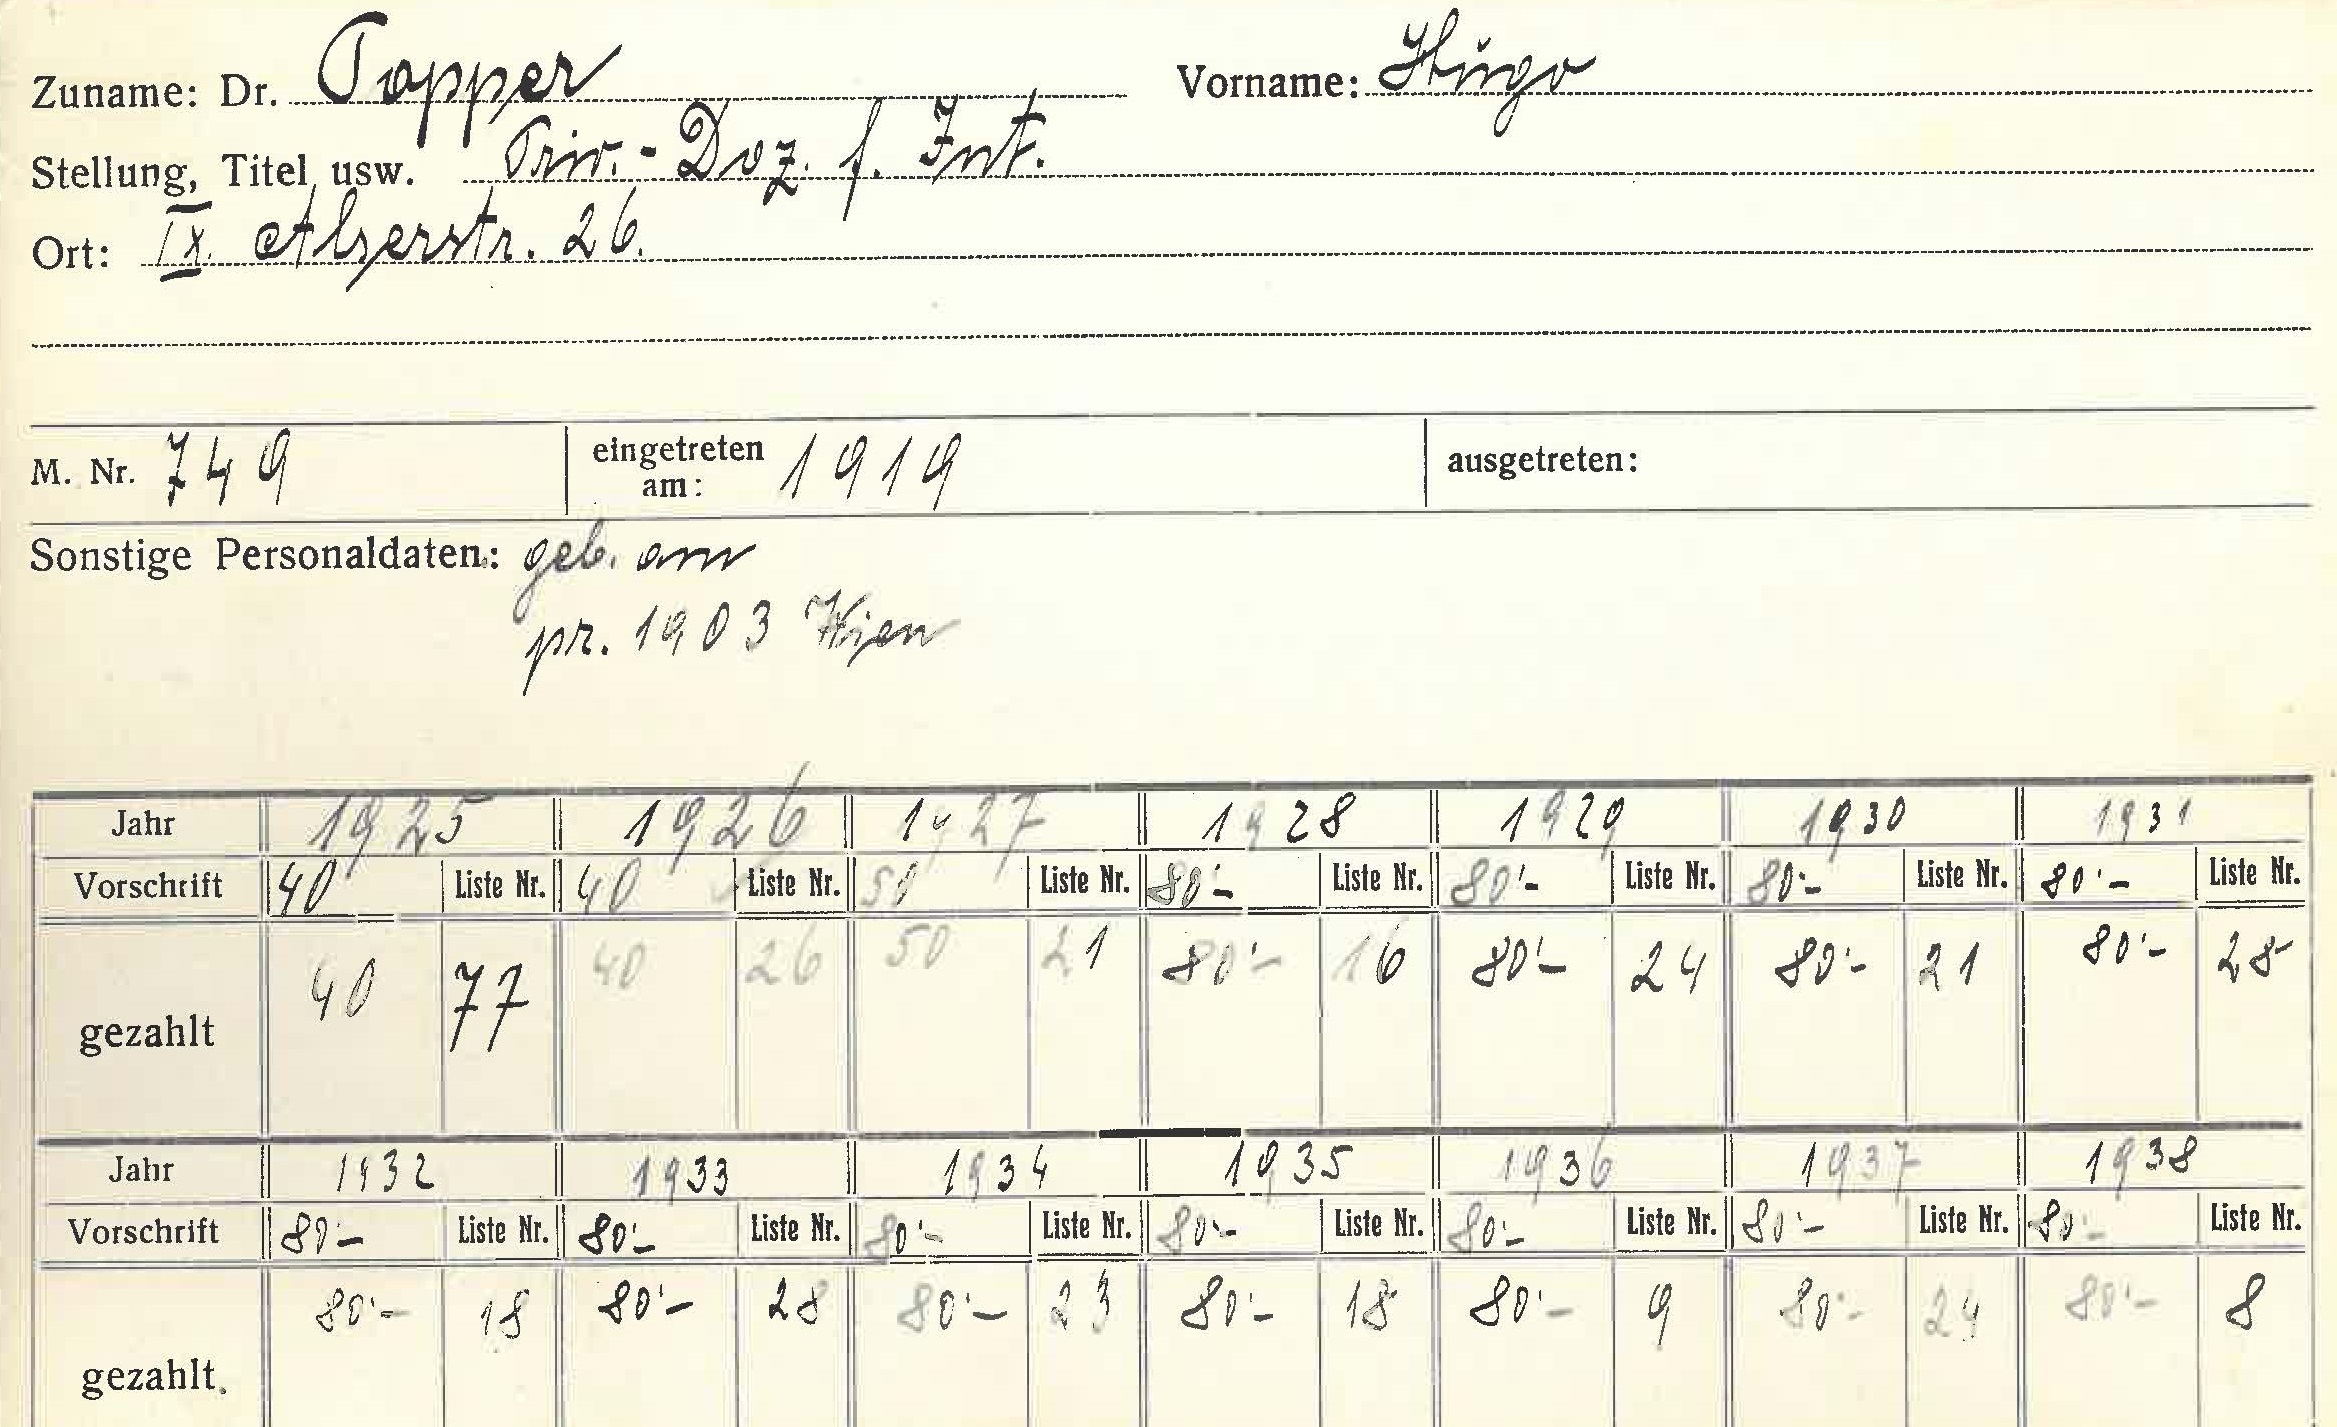 Zuname: Dr. Popper Vorname: Hugo
Stellung, Titel usw. Priv.-Doz. f. Int.
Ort: IX. Alserstr. 26.
M. Nr. 749 eingetreten am: 1919 ausgetreten:
Sonstige Personaldaten: geb. am
pr. 1903 Wien
Jahr 1925 1926 1927 1928 1929 1930 1931
Vorschrift 40 Liste Nr. 40 Liste Nr. 50 Liste Nr. 80'- Liste Nr. 80'- Liste Nr. 80'- Liste Nr. 80'- Liste Nr.
gezahlt 40 77 40 26 50 21 80'- 16 80'- 24 80'- 21 80'- 28
Jahr 1932 1933 1934 1935 1936 1937 1938
Vorschrift 80'- Liste Nr. 80'- Liste Nr. 80'- Liste Nr. 80'- Liste Nr. 80'- Liste Nr. 80'- Liste Nr. 80'- Liste Nr.
gezahlt 80'- 18 80'- 28 80'- 23 80'- 18 80'- 9 80'- 24 80'- 8